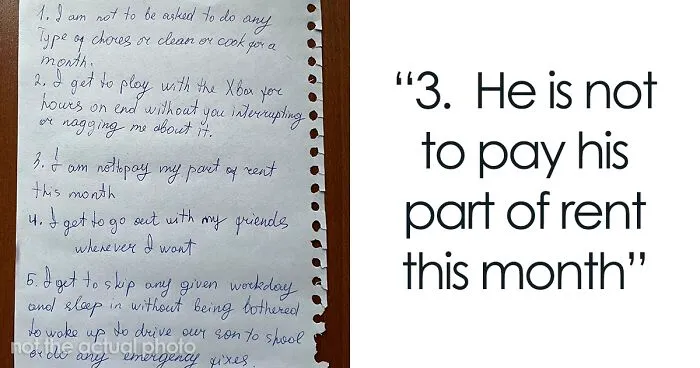 1. I am not to be asked to do any
Type of chores or clean or cook for a
month.
2. I get to play with the Xbox for
hours on end without you interrupting
or nagging me about it.
3. I am not to pay my part of rent
this month
4. I get to go out with my friends
whenever I want
5. I get to skip any given workday
and sleep in without being bothered
to wake up to drive our son to shool
or do any emergency fixes.
not the actual photo
“3. He is not
to pay his
part of rent
this month”